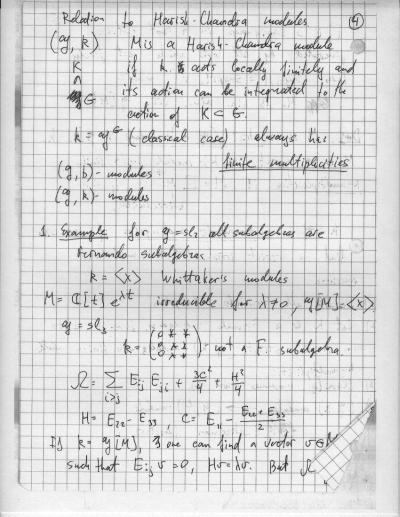 Relation to Harish-Chandra modules (4)
(𝔤, k) M is a Harish-Chandra module
K if k acts locally finitely and
∩ G its action can be integrated to the
action of K ⊂ G.
k = 𝔤^θ (classical case) always has
finite multiplicities
(𝔤, b) - modules
(𝔤, k) - modules
1. Example for 𝔤 = sl₂ all subalgebras are
Fernando subalgebras
k = ⟨x⟩ Whittaker's modules
M = ℂ[t] e^{λt} irreducible for λ≠0, 𝔤[M] = ⟨x⟩
𝔤 = sl₃
k = (0 * * / 0 * * / 0 * *) - not a F. subalgebra
Ω = Σ_{i>j} E_ij E_ji + 3C²/4 + H²/4
H = E₂₂ - E₃₃, C = E₁₁ - (E₂₂ + E₃₃)/2
If k = 𝔤[M], one can find a vector v ∈ M
such that E_ij v = 0, Hv = λv. But Ω